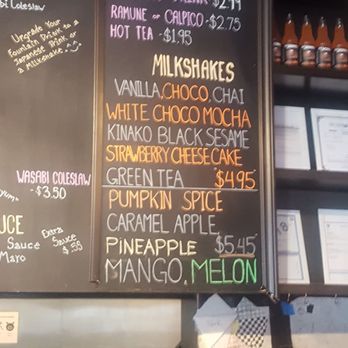 bi Coleslaw
Upgrade Your
Fountain Drink to a
Japanese Drink or
a Milkshake
WASABI COLESLAW
-$3.50
Sauce
Mayo
Extra
Sauce
$.55
RAMUNE or CALPICO -$2.75
HOT TEA -$1.95
MILKSHAKES
VANILLA, CHOCO, CHAI
WHITE CHOCO MOCHA
KINAKO BLACK SESAME
STRAWBERRY CHEESECAKE
GREEN TEA $4.95
PUMPKIN SPICE
CARAMEL APPLE
PINEAPPLE $5.45
MANGO, MELON